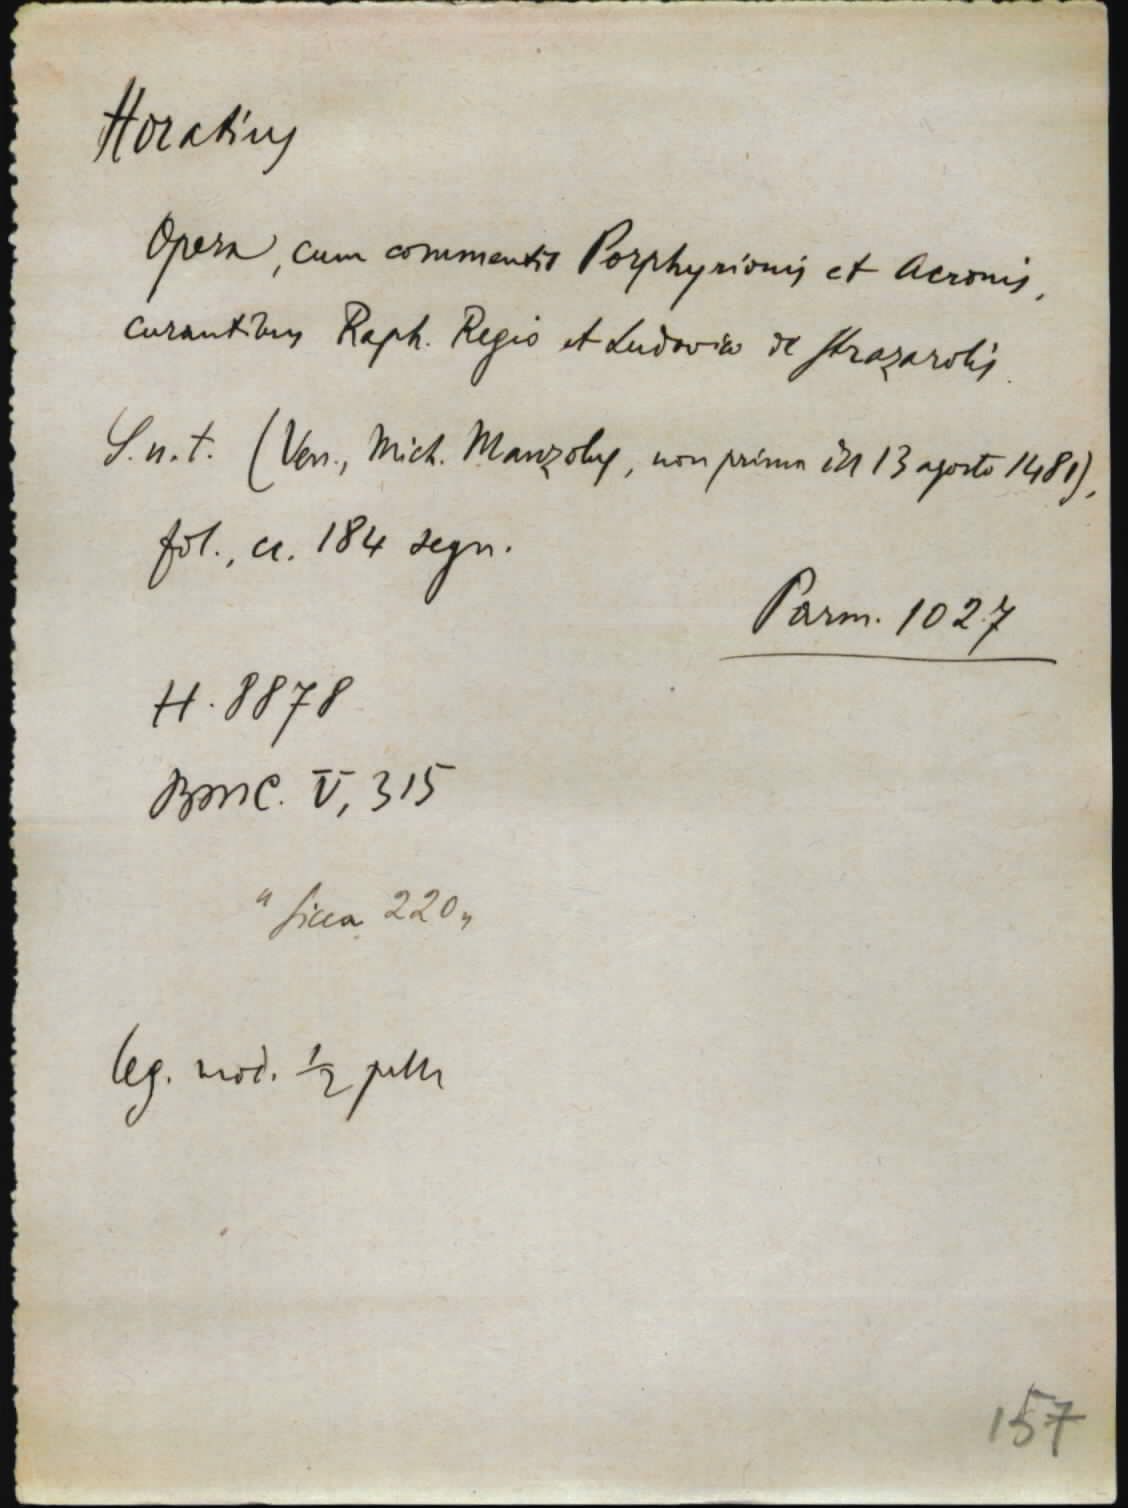 Horatius
Opera, cum commentis Porphyrionis et Acronis,
curantibus Raph. Regio et Ludovico de Strazarolis.
S.n.t. (Ven., Mich. Manzolus, non prima del 13 agosto 1481),
fol., cc. 184 segn.
Parm. 1027
H. 8878
BMC. V, 315
" sicca 220 „
leg. mod. ½ pelle
157